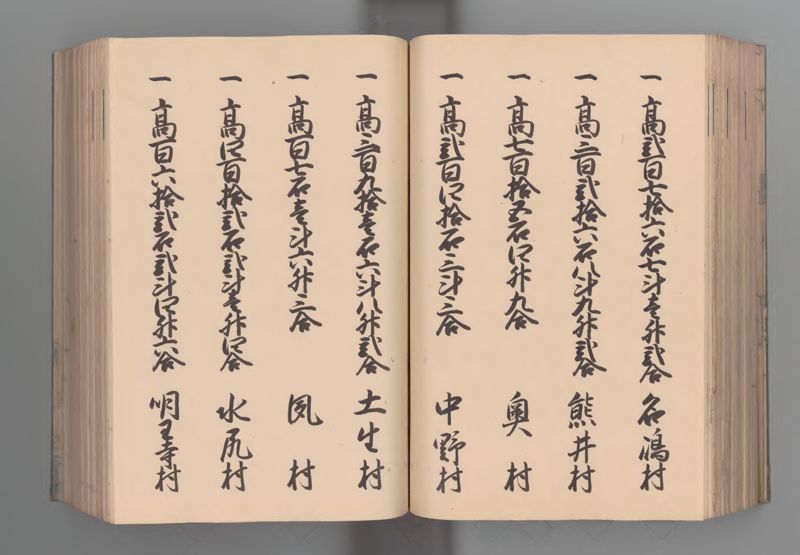 一高弐百七拾六石七斗壱升弐合 名嶋村
一高三百弐拾六石八斗九升弐合 熊井村
一高七百拾五石四升九合 奥村
一高弐百四拾石三斗三合 中野村
一高三百九拾壱石六斗八升弐合 土生村
一高百七石壱斗六升三合 夙村
一高四百拾弐石弐斗壱升四合 水尻村
一高百六拾弐石弐斗四升六合 明王寺村